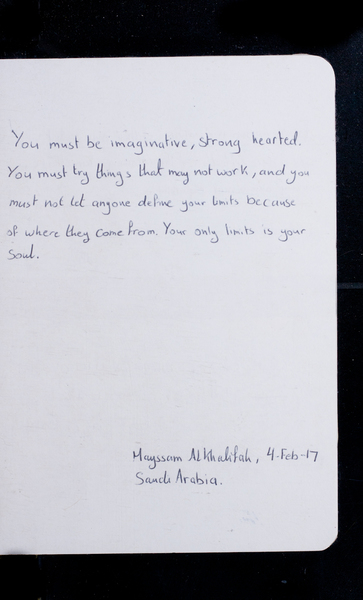 You must be imaginative, strong hearted.
You must try things that may not work, and you
must not let anyone define your limits because
of where they come from. Your only limits is your
soul.
Mayssam AlKhalifah, 4-Feb-17
Saudi Arabia.